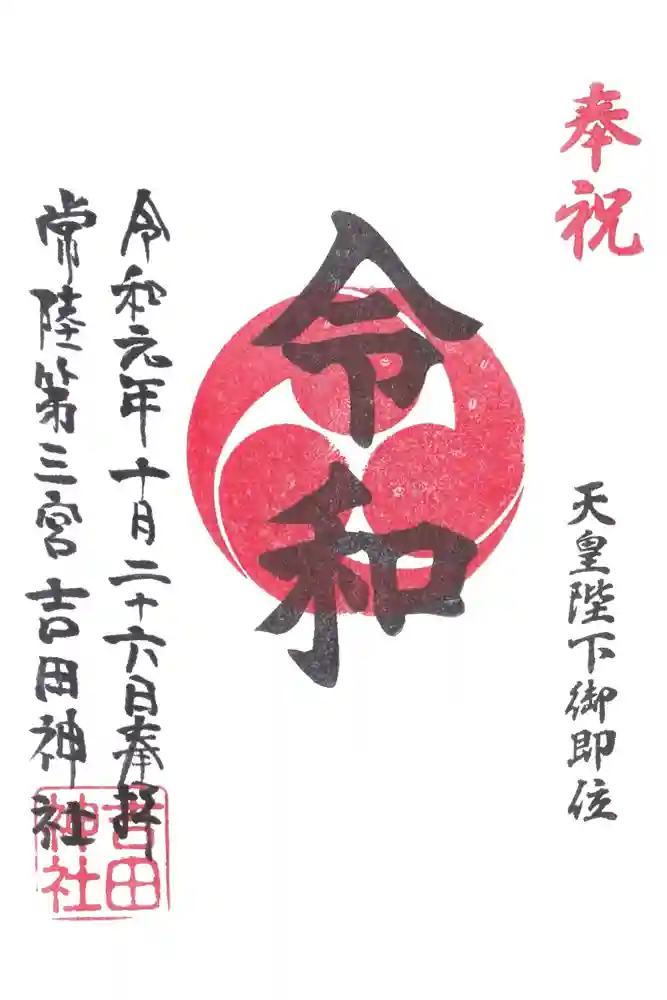 奉祝
天皇陛下御即位
令和
令和元年十月二十六日奉拝
常陸第三宮吉田神社
吉田
神社